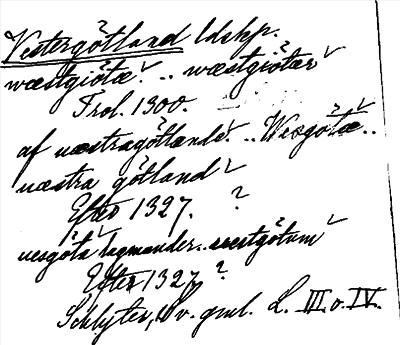 Vestergötland ldskp.
wæstgiötæ .. wæstgiötær
Trol. 1300.
af uæstragötlande .. Wesgötæ..
uæstra götland
Efter 1327. ?
uesgöta lagmander.. westgötum
Efter 1327 ?
Schlyter, Uv. gml. L. III o. IV.